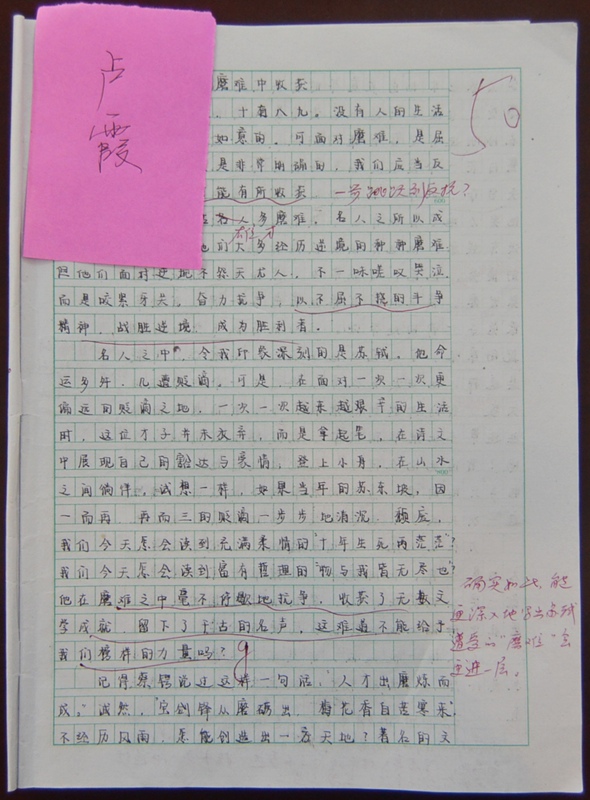 卢霞
磨难中收获
50
,十有八九。没有人的生活
如意的。可面对磨难,是屈
是非常明确的,我们应当反
能有所收获 一步跳跃到反抗?
名人多磨难。名人之所以成
雄才
们大多经历逆境的种种磨难
但他们面对逆境不怨天尤人,不一味嗟叹哭泣,
而是咬紧牙关,奋力抗争,以不屈不挠的斗争
精神,战胜逆境,成为胜利者。
名人之中,令我印象深刻的是苏轼。他命
运多舛,几遭贬谪。可是,在面对一次一次更
偏远的贬谪之地,一次一次越来越艰辛的生活
时,这位才子并未放弃,而是拿起笔,在诗文
中展现自己的豁达与豪情,登上小舟,在山水
之间徜徉。试想一样,如果当年的苏东坡,因
一而再,再而三的贬谪一步步地消沉、颓废,
我们今天怎会读到充满柔情的"十年生死两茫茫"?
我们今天怎会读到富有哲理的"物与我皆无尽也"?
他在磨难之中毫不停歇地抗争,收获了无数文
学成就,留下了千古的名声,这难道不能给予
我们榜样的力量吗?
确实如此,能
更深入地写出苏轼
遭受的"磨难"会
更进一层。
记得蔡锷说过这样一句话,"人才出磨炼而
成。"诚然,"宝剑锋从磨砺出,梅花香自苦寒来"
不经历风雨,怎能创造出一番天地?著名的文